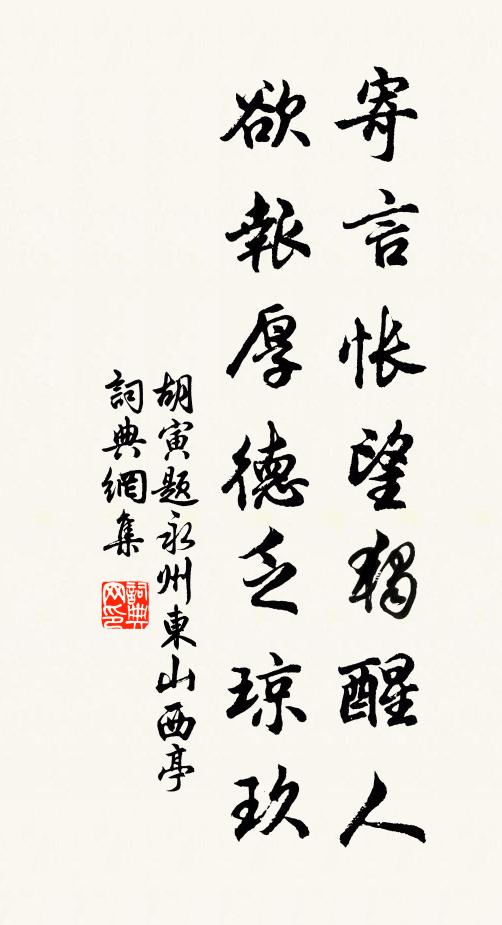 寄言悵望獨醒人
欲報厚德乏瓊玖
胡寅題永州東山西亭
詞典網集
詞典
网印